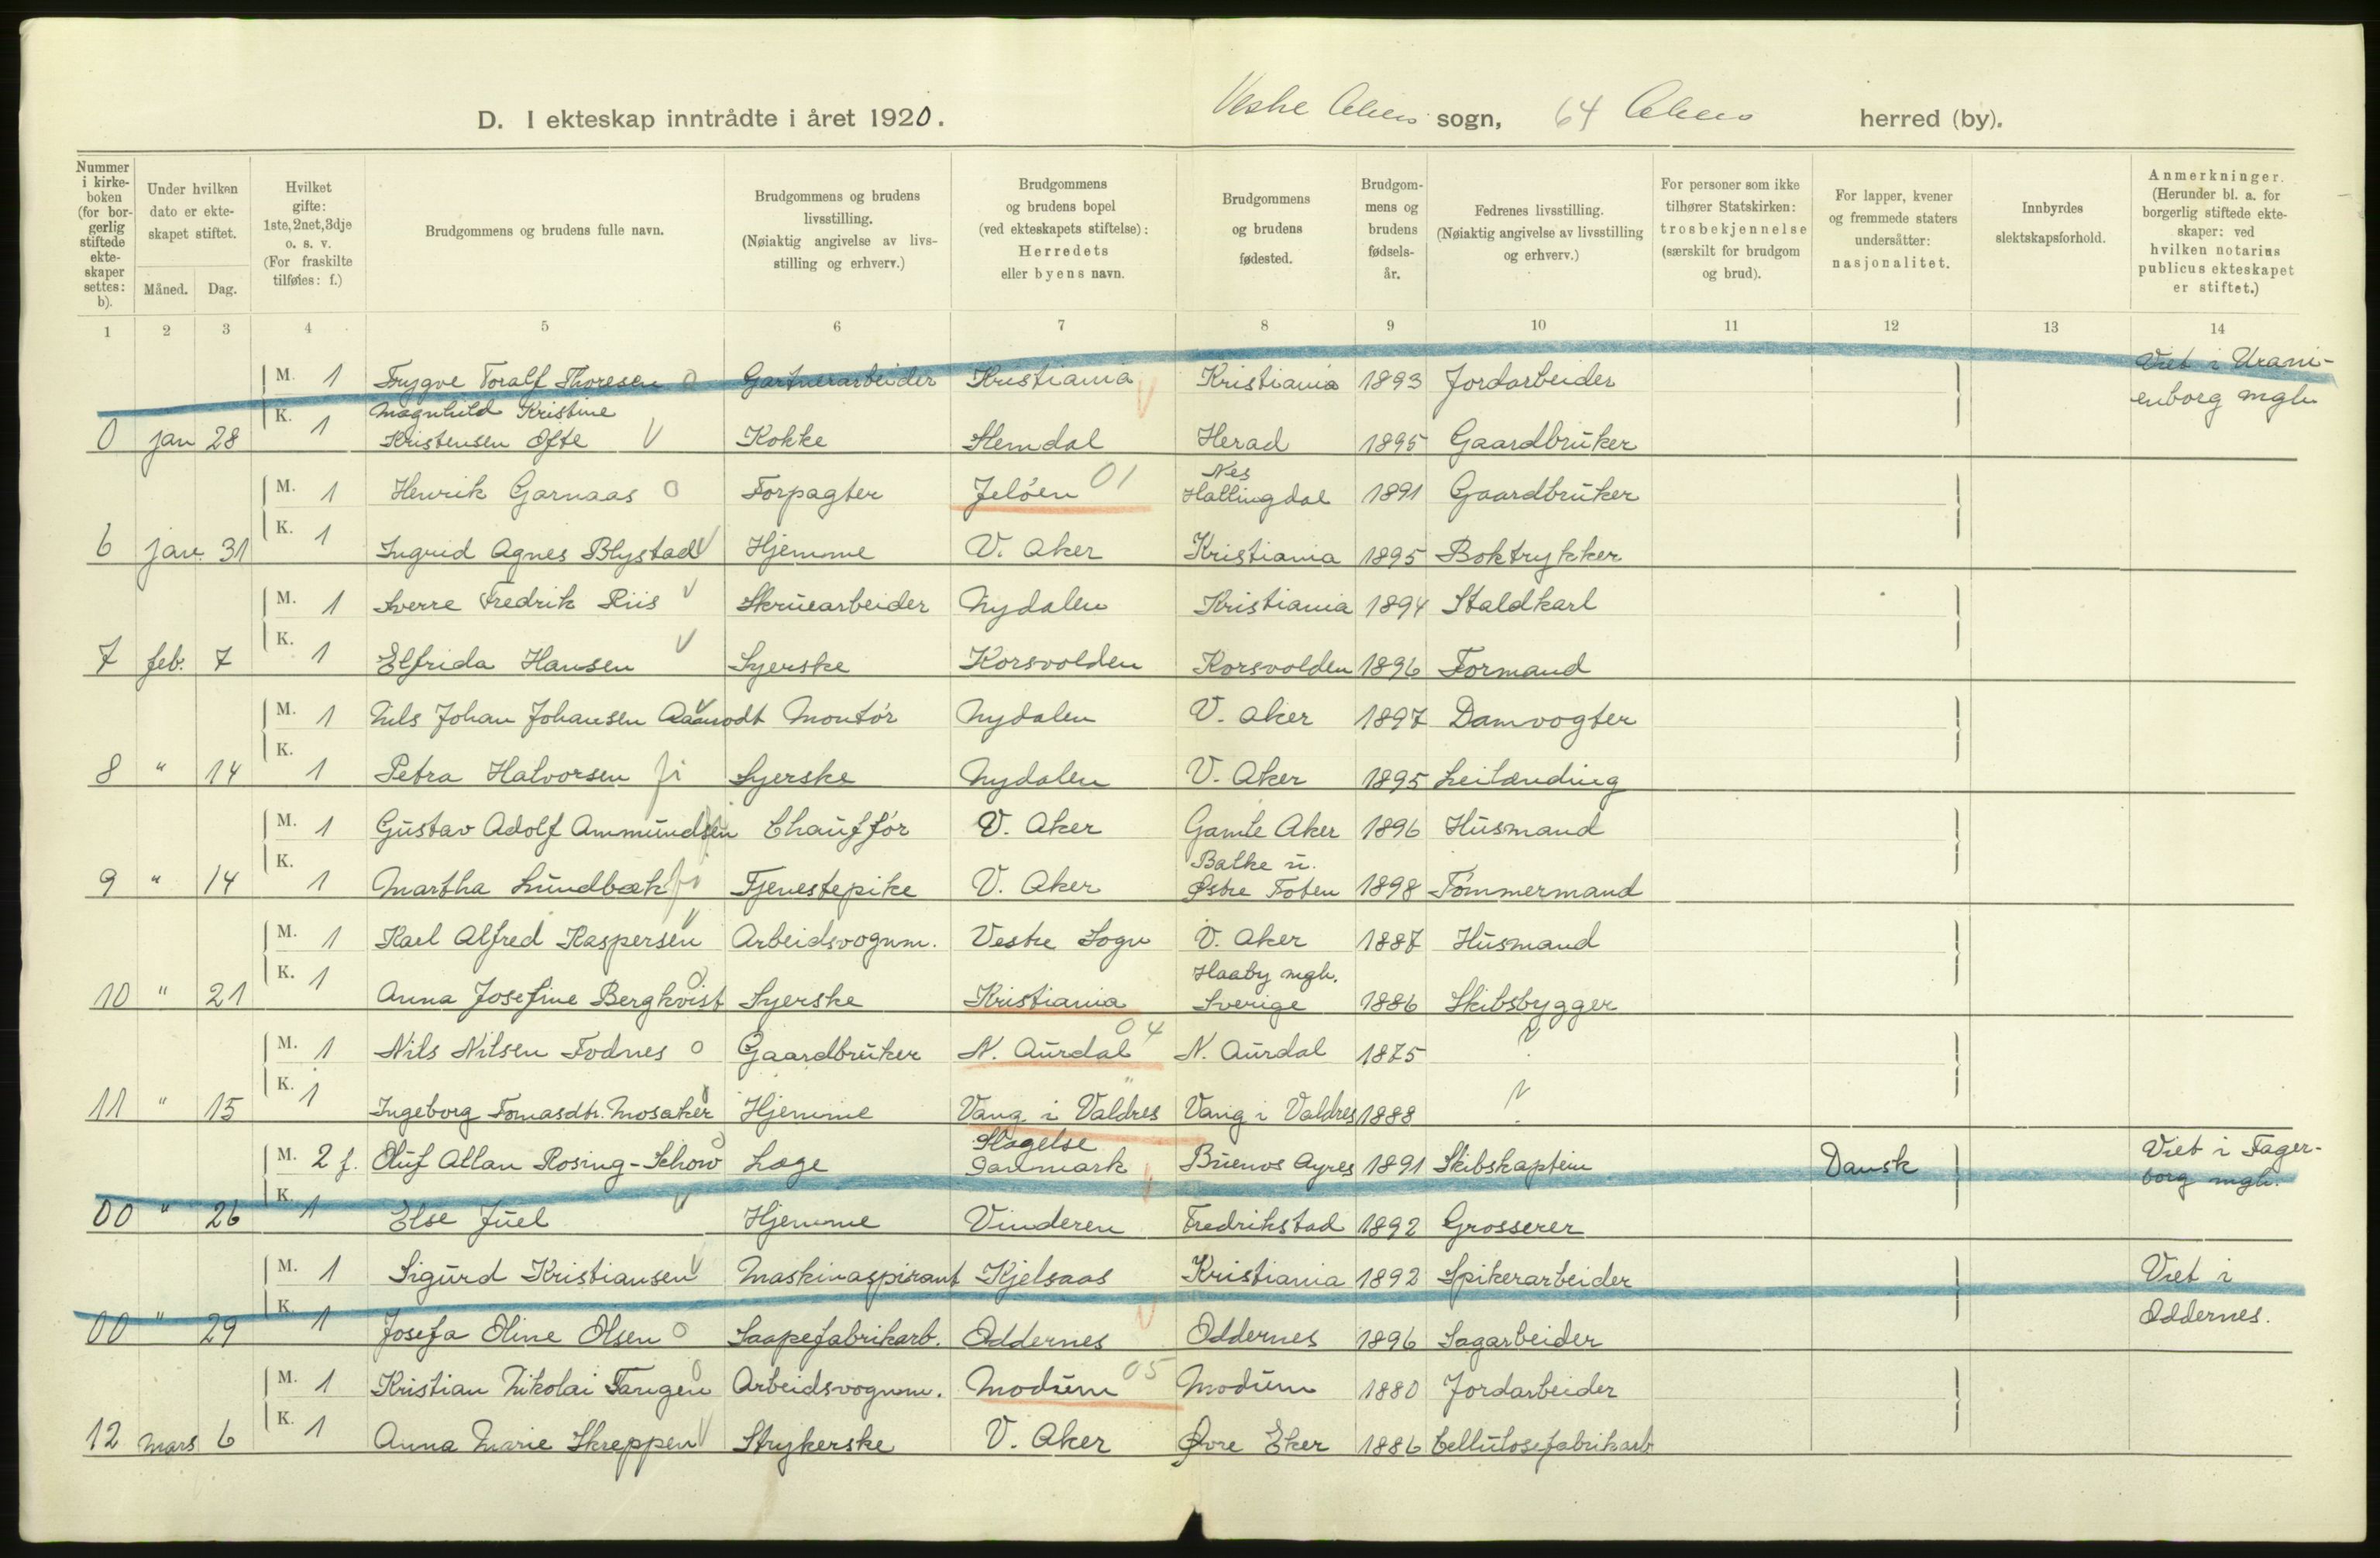 D. I ekteskap inntrådte i året 1920. Vestre Akers sogn, 64 Akers herred (by).
Nummer i kirkeboken (for borgerlig stiftede ekteskaper settes: b).
Under hvilken dato er ekteskapet stiftet.
Måned. Dag.
Hvilket gifte: 1ste, 2net, 3dje o. s. v. (For fraskilte tilføies: f.)
Brudgommens og brudens fulle navn.
Brudgommens og brudens livsstilling. (Nøiaktig angivelse av livsstilling og erhverv.)
Brudgommens og brudens bopel (ved ekteskapets stiftelse): Herredets eller byens navn.
Brudgommens og brudens fødested.
Brudgommens og brudens fødselsår.
Fedrenes livsstilling. (Nøiaktig angivelse av livsstilling og erhverv.)
For personer som ikke tilhører Statskirken: trosbekjennelse (særskilt for brudgom og brud).
For lapper, kvener og fremmede staters undersåtter: nasjonalitet.
Innbyrdes slektskapsforhold.
Anmerkninger. (Herunder bl. a. for borgerlig stiftede ekteskaper: ved hvilken notarius publicus ekteskapet er stiftet.)
1 2 3 4 5 6 7 8 9 10 11 12 13 14
M. 1 Trygve Toralf Thoresen o Gartnerarbeider Kristiania Kristiania 1893 Jordarbeider Viet i Urani-
enborg mgh.
K. 1 Magnhild Kristine
0 jan 28 Kristensen Ofte V Kokke Hemdal Herad 1895 Gaardbruker
M. 1 Henrik Garnaas o Forpagter Jeløen 01 Nes Hallingdal 1891 Gaardbruker
6 jan. 31 K. 1 Ingrid Agnes Blystad V Hjemme V. Aker Kristiania 1895 Boktrykker
M. 1 Sverre Fredrik Riis V Skruearbeider Nydalen Kristiania 1894 Staldkarl
7 feb. 7 K. 1 Elfrida Hansen V Syerske Korsvolden Korsvolden 1896 Formand
M. 1 Nils Johan Johansen Aamodt Montør Nydalen V. Aker 1897 Damvogter
8 " 14 K. 1 Petra Halvorsen Syerske Nydalen V. Aker 1895 Leilænding
M. 1 Gustav Adolf Ammundsen Chauffør V. Aker Gamle Aker 1896 Husmand
9 " 14 K. 1 Martha Lundbæk Tjenestepike V. Aker Balke i Østre Toten 1898 Tømmermand
M. 1 Karl Alfred Kaspersen V Arbeidsvognm. Vestre Sogn V. Aker 1887 Husmand
10 " 21 K. 1 Anna Josefine Bergkvist o Syerske Kristiania Haaby mgh. Sverige 1886 Skibsbygger
M. 1 Nils Nilsen Fodnes o Gaardbruker N. Aurdal 04 N. Aurdal 1875 ?
11 " 15 K. 1 Ingeborg Tomasdtr. Mosaker Hjemme Vang i Valdres " Vang i Valdres 1888 ?
M. 2 f. Oluf Allan Rosing-Schow o Læge Slagelse Danmark Buenos Ayres 1891 Skibskaptein Dansk Viet i Fager-
borg mgh.
00 " 26 K. 1 Else Juel V Hjemme Vinderen Fredrikstad 1892 Grosserer
M. 1 Sigurd Kristiansen V Maskinaspirant Kjelsaas Kristiania 1892 Spikerarbeider Viet i
Oddernes.
00 " 29 K. 1 Josefa Oline Olsen o Saapefabrikarb. Oddernes Oddernes 1896 Sagarbeider
M. 1 Kristian Nikolai Tangen o Arbeidsvognm. Modum 05 Modum 1880 Jordarbeider
12 mars 6 K. 1 Anna Marie Skreppen V Strykerske V. Aker Øvre Eker 1886 Cellulosefabrikarb